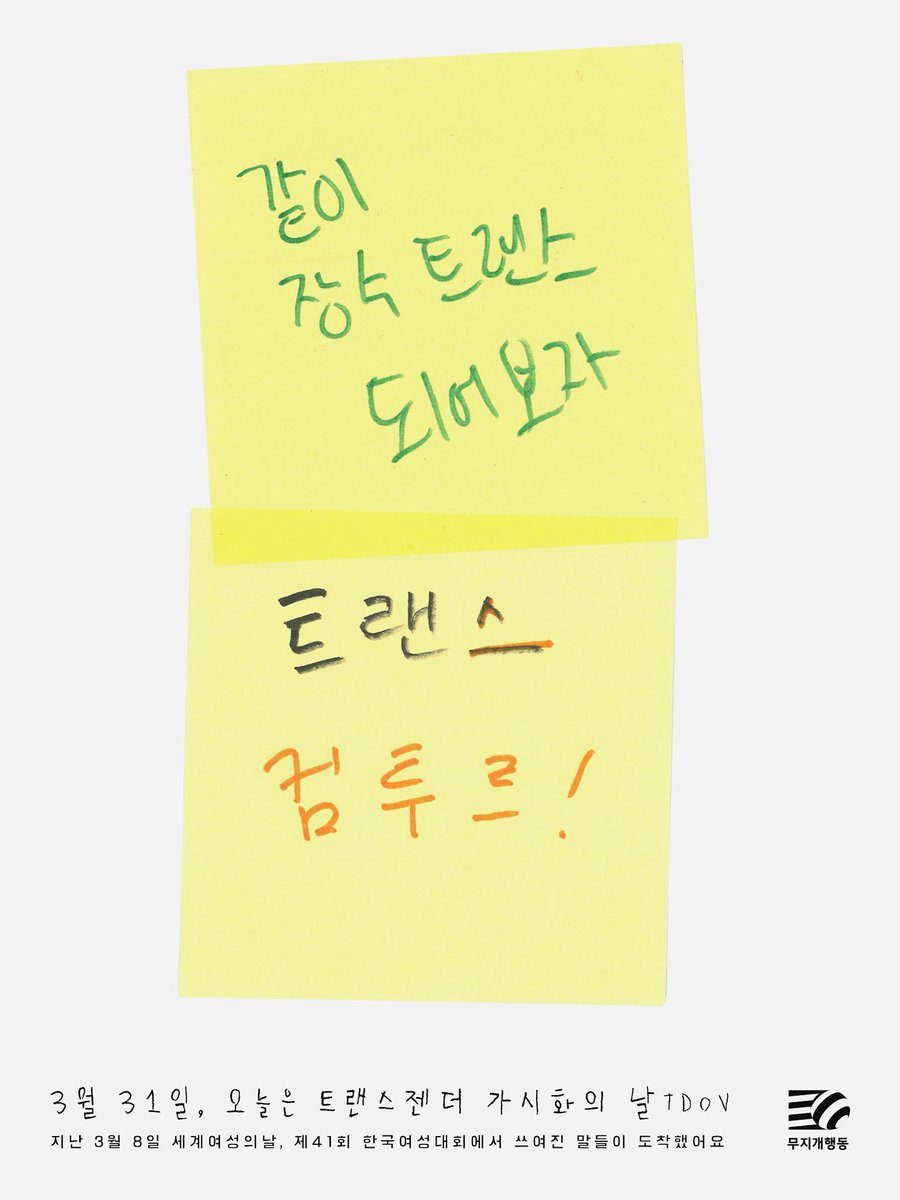 같이
장수 트랜스
되어보자
트랜스
컴투르!
3월 31일, 오늘은 트랜스젠더 가시화의 날 TDOV
지난 3월 8일 세계여성의날, 제41회 한국여성대회에서 쓰여진 말들이 도착했어요
무지개행동